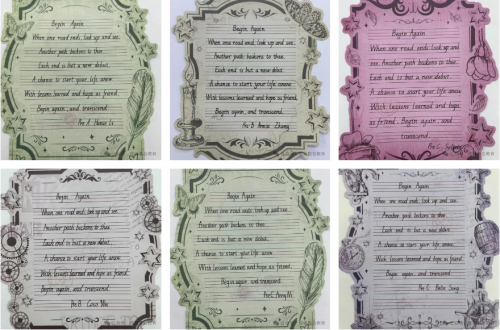 Begin Again
When one road ends, look up and see.
Another path beckons to thee.
Each end is but a new debut.
A chance to start your life anew.
With lessons learned and hope as friend.
Begin again, and transcend.
Pre A
Begin Again
When one road ends, look up and see.
Another path beckons to thee.
Each end is but a new debut.
A chance to start your life anew.
With lessons learned and hope as friend.
Begin again, and transcend.
Pre B Annie Zhang
Begin Again
When one road ends, look up and
see. Another path beckons to thee.
Each end is but a new debut.
A chance to start your life anew
With lessons learned and hope
as friend. Begin again, and
transcend.
Pre C
Begin Again
When one road ends, look up and see.
Another path beckons to thee.
Each end is but a new debut.
A chance to start your life anew.
With lessons learned and hope as friend.
Begin again, and transcend.
Pre B Coco
Begin Again
When one road ends, look up and see
Another path beckons to thee.
Each end is but a new debut.
A chance to start your life anew
With lessons learned and hope as friend.
Begin again and transcend.
Pre C
Begin Again
When one road ends, look up and see.
Another path beckons to thee.
Each end is but a new debut.
A chance to start your life anew.
With lessons learned and hope as friend.
Begin again, and transcend.
Pre C Bella Song